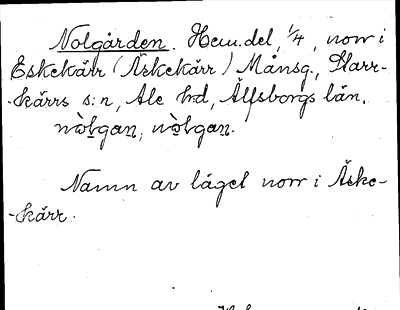 Nolgården. Hem.del, 1/4, norr i
Eskekärr (Äskekärr) Månsg., Starr-
-kärrs s:n, Ale hd, Älfsborgs län.
nò̤lgan; nò̤lgan.
Namn av läget norr i Äske-
-kärr.